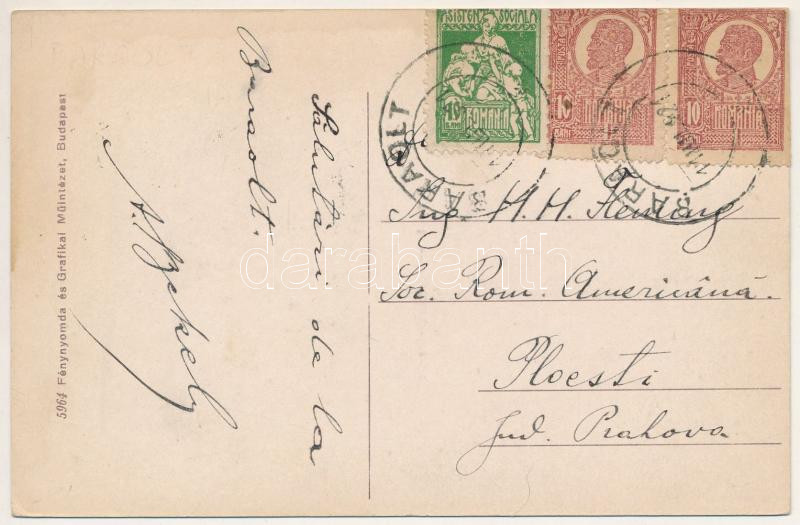 Salutări de la
Baraolt.
A. Szekely
5964 Fénynyomda és Grafikai Műintézet, Budapest
ASISTENȚA SOCIALĂ
10 BANI
ROMANIA
POSTA
10
BANI
ROMANIA
POSTA
10
ROMANIA
BARAOLT
Ing. H. H.
Soc. Rom. Americănă.
Ploesti
Jud. Prahova
darabanth